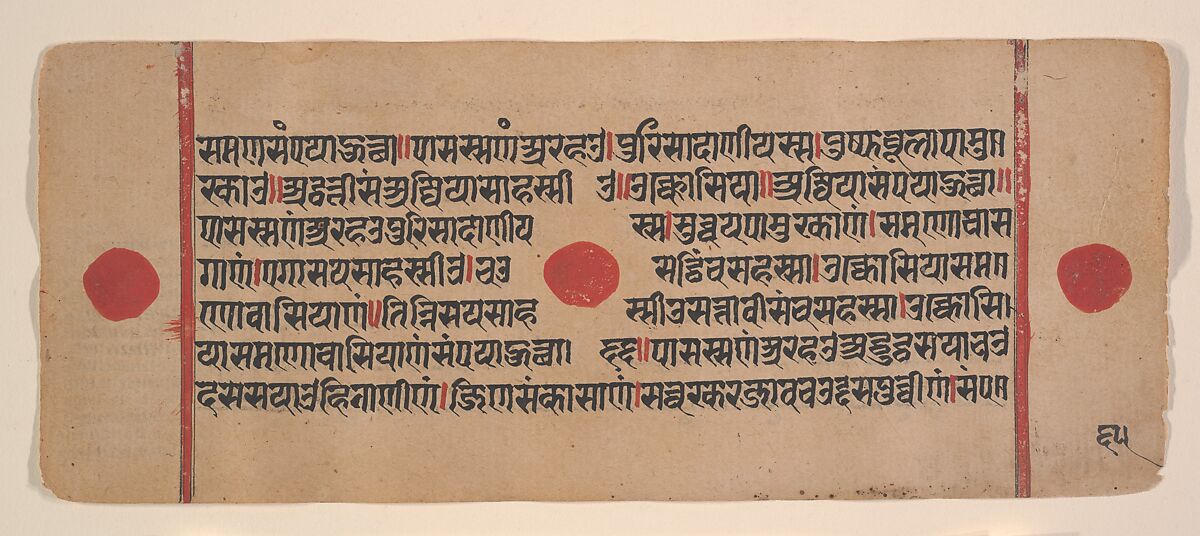 समणसंपयाऊत्था॥पासस्सणंअरहउ।पुरिसादाणीयस्स।पुप्फचूलापामु
रकाउ॥अट्ठत्तीसंअज्जियासाहस्सीउ॥उक्कोसिया॥अज्जियासंपयाऊत्था॥
पासस्सणंअरहउपुरिसादाणीयस्स।सुव्वयपामुरकाणं।समणोवास
गाणं।एगासयसाहस्सीउ।चउसट्ठिंचसहस्सा।उक्कोसियासमण
णोवासियाणं॥तिन्निसयसाहस्सीउसत्तावीसंचसहस्सा।उक्कोसि
यासमणोवासियाणंसंपयाऊत्था। ६६॥पासस्सणंअरहउअद्धुट्ठसयाचउ
दससयाउहिनाणीणं।जिणसंकासाणं।सव्वरकरजावचउद्दसपुव्वीणं।संप
६५